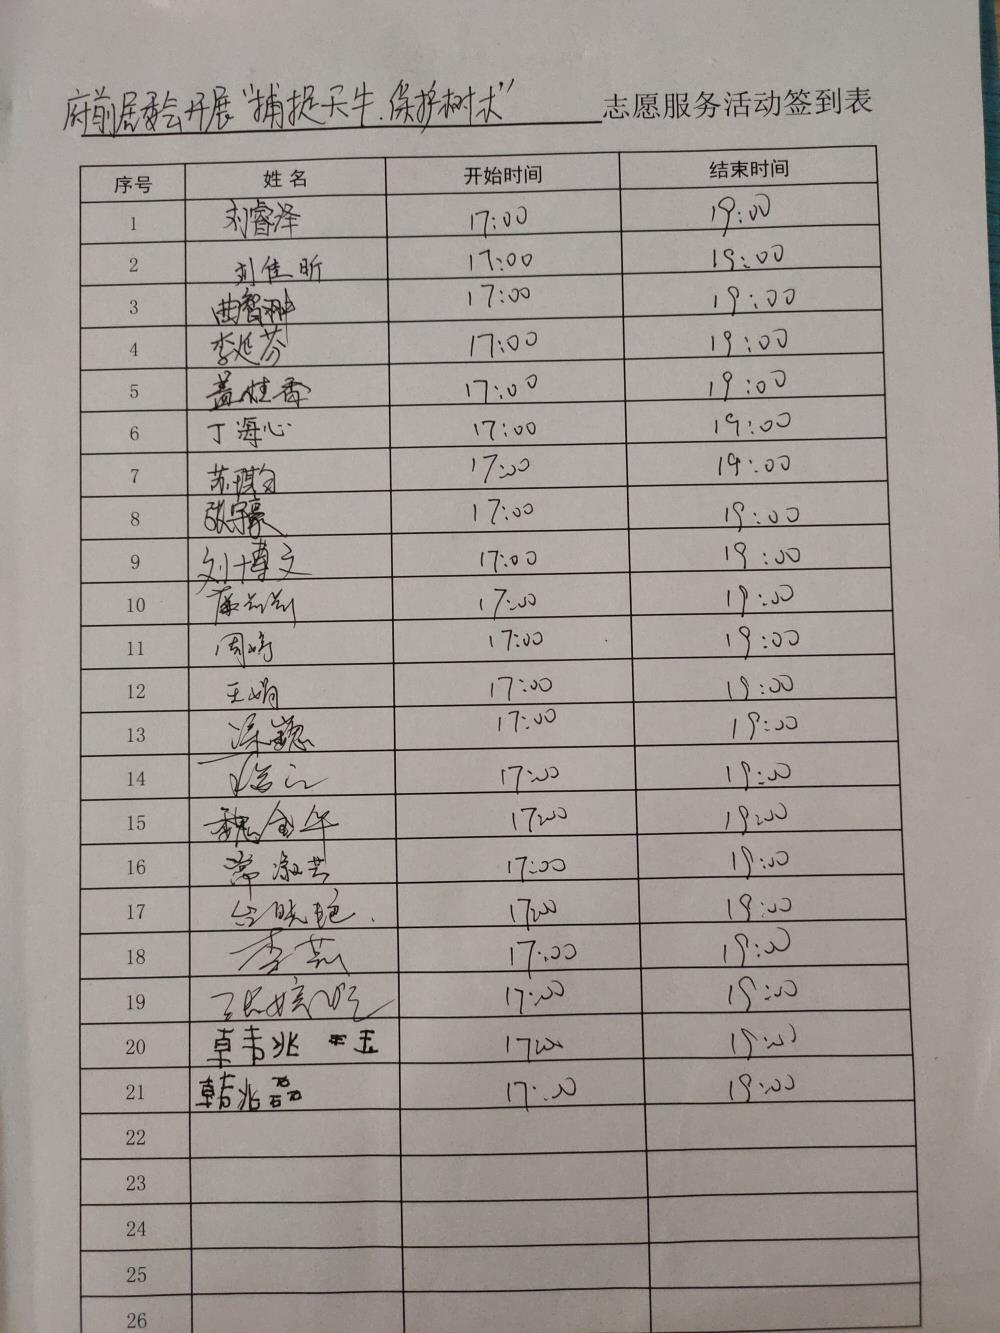 府前居委会开展"捕捉天牛.保护树木"志愿服务活动签到表
序号 姓名 开始时间 结束时间
1 刘睿泽 17:00 19:00
2 刘佳昕 17:00 19:00
3 曲智 17:00 19:00
4 李延芬 17:00 19:00
5 盖桂香 17:00 19:00
6 丁海心 17:00 19:00
7 苏琪 17:00 19:00
8 张宇豪 17:00 19:00
9 刘博文 17:00 19:00
10 17:00 19:00
11 周婷 17:00 19:00
12 王娟 17:00 19:00
13 17:00 19:00
14 17:00 19:00
15 魏金华 17:00 19:00
16 常淑芸 17:00 19:00
17 台晓艳. 17:00 19:00
18 李燕 17:00 19:00
19 17:00 19:00
20 韩兆玉 17:00 19:00
21 韩兆磊 17:00 19:00
22
23
24
25
26